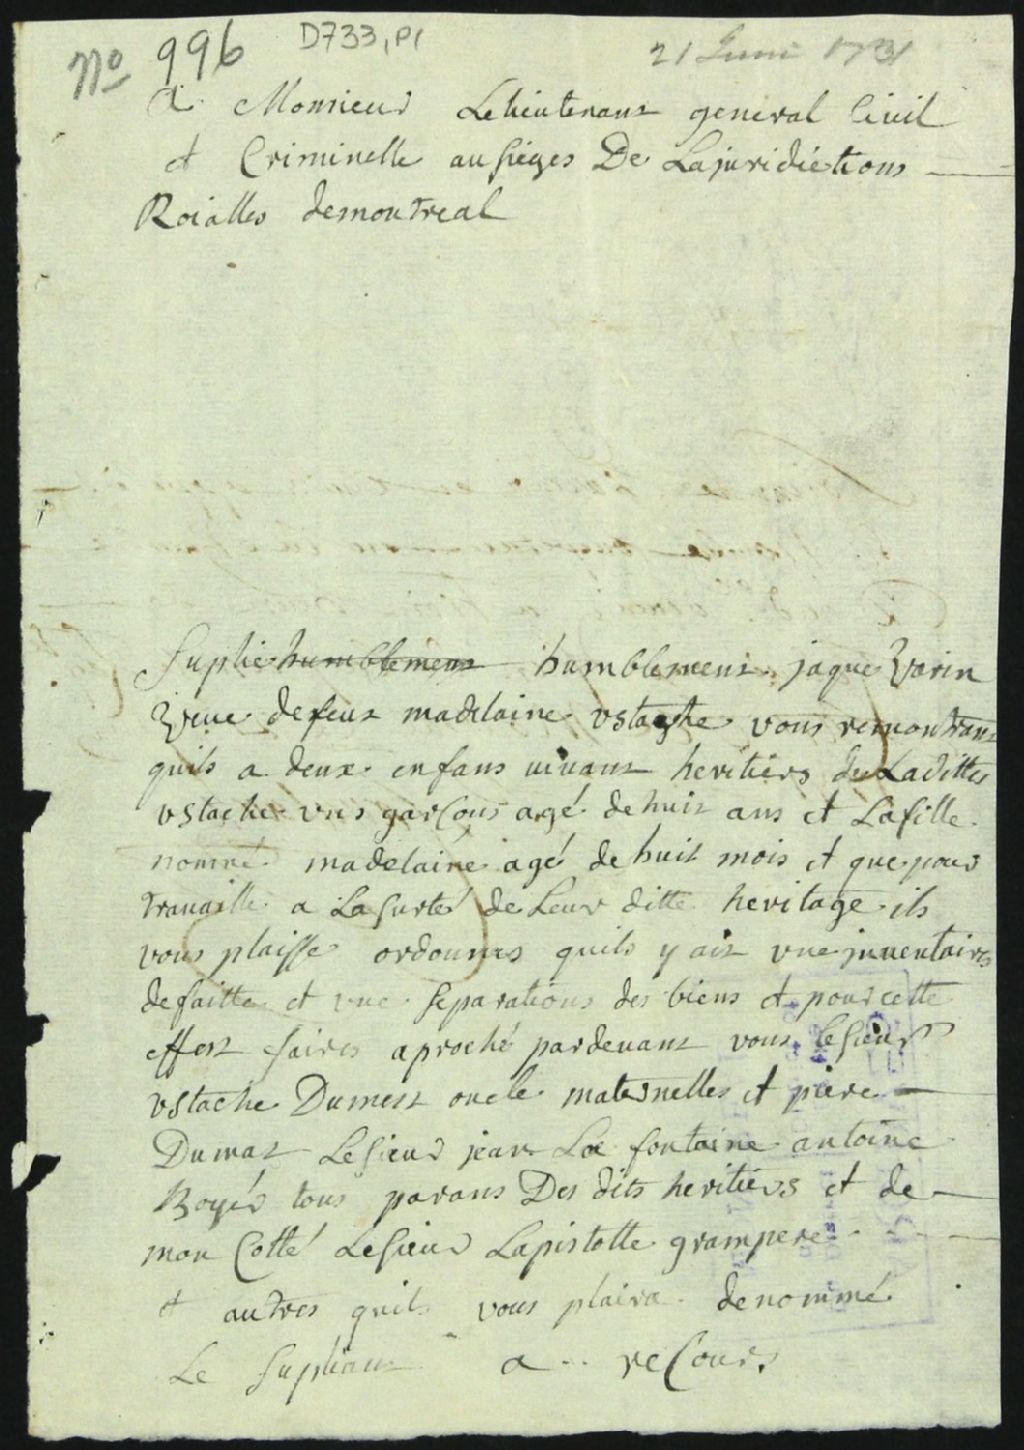 No 996 D733, P1 21 Juin 1731
A Monsieur Le lieutenant general Civil
et Criminelle au sieges De La juridictions
Roialles de montreal
Suplie humblement humblement jaque Varin
Veue defeut madelaine ustache vous remontrant
quils a deux enfans vivant heritiers de La ditte
ustache uns garCons agé de huit ans et La fille
nommé madelaine agé de huit mois et que pour
travaille a La surté de Leur ditte heritage ils
vous plaisse ordonnes quils y ait une inventaires
de faitte et une separations des biens et pour cette
effect faires aproché pardevant vous le sieur
ustache Dumest oncle maternelles et piere
Dumat Le sieur jean La fontaine antoine
Boyér tous parans Des dits heritiers et de
mon Cotté Le sieur Lapistolle grampere
et autres quils vous plaira denommé
Le supliant a reCours